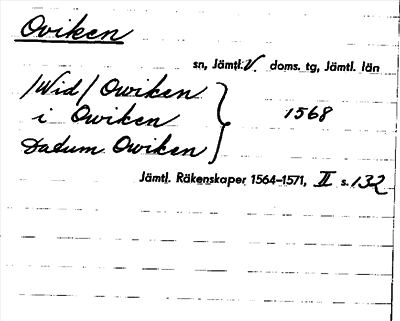 Oviken
sn, Jämtl. V. doms. tg, Jämtl. län
/Wid/ Owiken
i Owiken } 1568
Datum Owiken
Jämtl. Räkenskaper 1564–1571, II s. 132